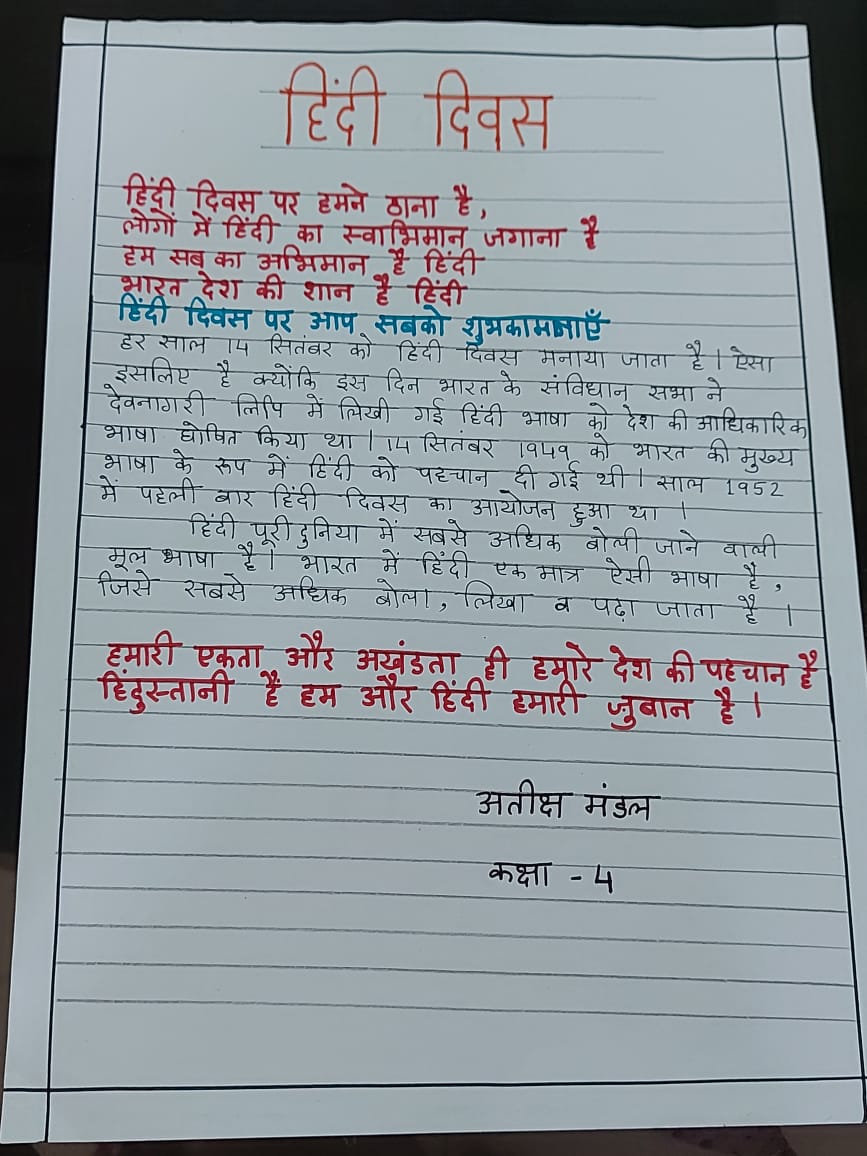 हिंदी दिवस
हिंदी दिवस पर हमने ठाना है,
लोगों में हिंदी का स्वाभिमान जगाना है
हम सब का अभिमान है हिंदी
भारत देश की शान है हिंदी
हिंदी दिवस पर आप सबको शुभकामनाएँ
हर साल 14 सितंबर को हिंदी दिवस मनाया जाता है। ऐसा
इसलिए है क्योंकि इस दिन भारत के संविधान सभा ने
देवनागरी लिपि में लिखी गई हिंदी भाषा को देश की आधिकारिक
भाषा घोषित किया था। 14 सितंबर 1949 को भारत की मुख्य
भाषा के रूप में हिंदी को पहचान दी गई थी। साल 1952
में पहली बार हिंदी दिवस का आयोजन हुआ था।
हिंदी पूरी दुनिया में सबसे अधिक बोली जाने वाली
मूल भाषा है। भारत में हिंदी एक मात्र ऐसी भाषा है,
जिसे सबसे अधिक बोला, लिखा व पढ़ा जाता है।
हमारी एकता और अखंडता ही हमारे देश की पहचान है
हिंदुस्तानी है हम और हिंदी हमारी जुबान है।
अतीक्ष मंडल
कक्षा - 4